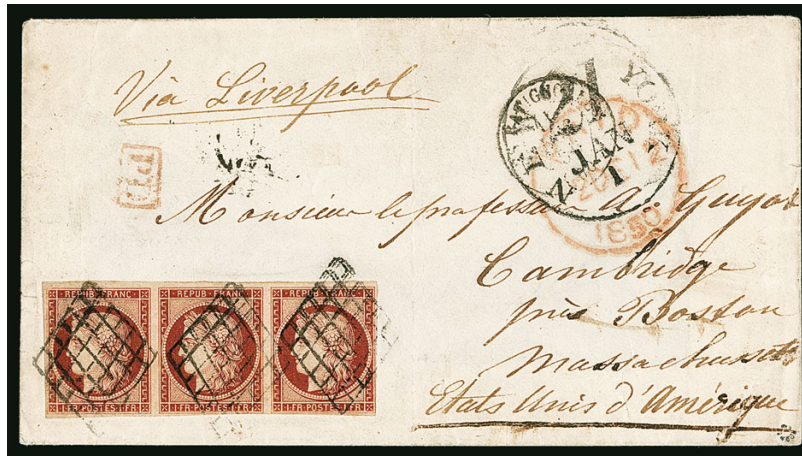 Via Liverpool
P.P.
YORK
JAN
1
1850
Monsieur le professeur A. Guyot
Cambridge
près Boston
Massachusetts
Etats Unis d'Amérique
REPUB. FRANC. REPUB. FRANC. REPUB. FRANC.
1 FR. POSTES 1 FR. 1 FR. POSTES 1 FR. 1 FR. POSTES 1 FR.